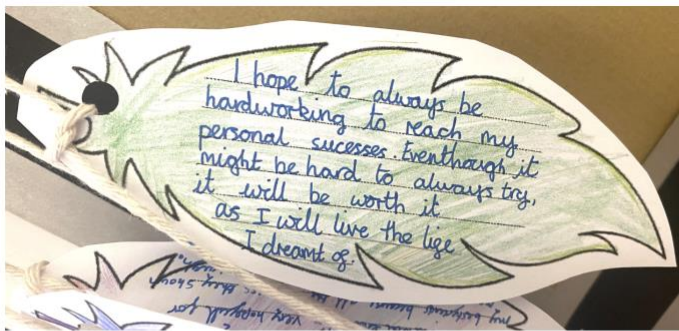 I hope to always be
hardworking to reach my
personal sucesses. Eventhough it
might be hard to always try,
it will be worth it
as I will live the lige
I dreamt of.
very hopefull for